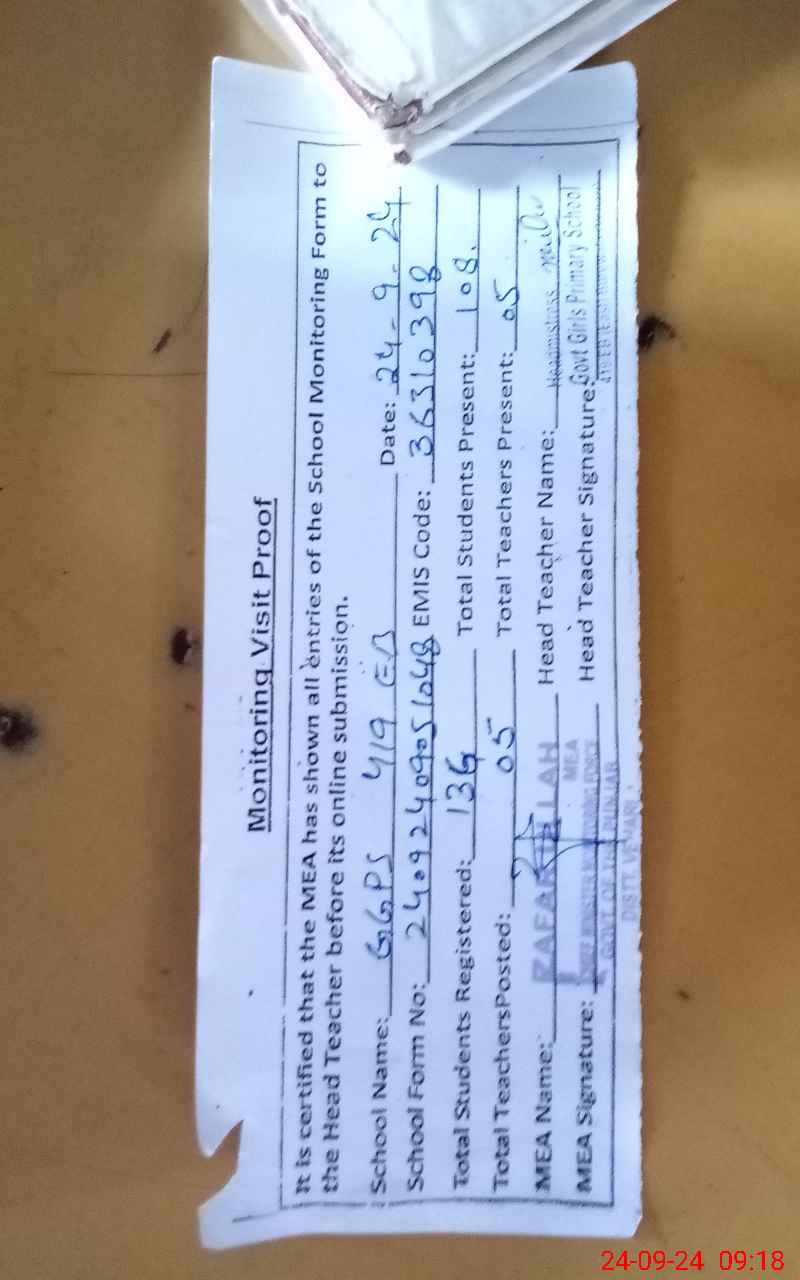 Monitoring Visit Proof
It is certified that the MEA has shown all entries of the School Monitoring Form to
the Head Teacher before its online submission.
School Name: GGPS 419 EB Date: 24-9-24
School Form No: EMIS Code: 36310398
Total Students Registered: 136 Total Students Present: 108.
Total TeachersPosted: 05 Total Teachers Present: 05
MEA Name: Head Teacher Name: Headmistress
MEA Signature: Head Teacher Signature: Govt Girls Primary School
MEA
CHIEF MINISTER MONITORING FORCE
GOVT. OF THE PUNJAB
DISTT. VEHARI
24-09-24 09:18